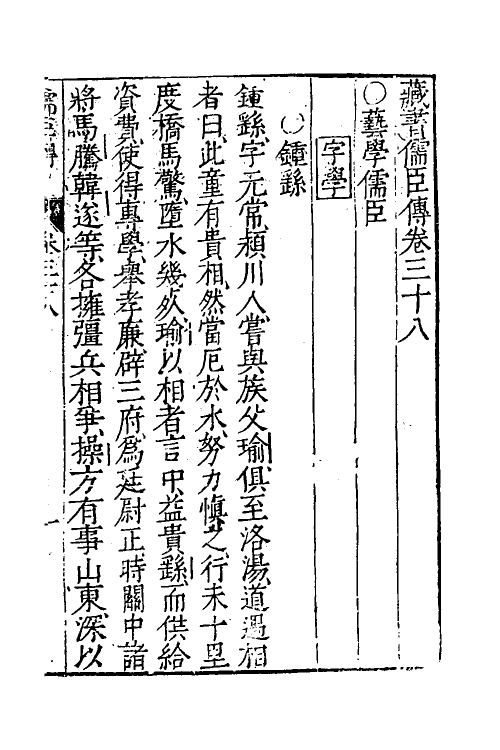 藏書儒臣傳卷三十八
○藝學儒臣
字學
○鍾繇
鍾繇字元常潁川人嘗與族父瑜俱至洛湯道遇相
者曰此童有貴相然當厄於水努力慎之行未十里
度橋馬驚墮水幾死瑜以相者言中益貴繇而供給
資費使得專學舉孝廉辟三府為廷尉正時關中諸
將馬騰韓遂等各擁彊兵相爭操方有事山東深以
儒臣傳 卷三十八